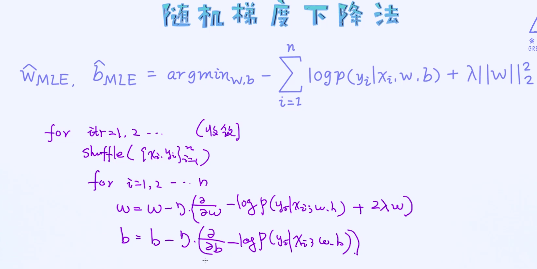 随机梯度下降法
ŵ_MLE, b̂_MLE = argmin_{w,b} - ∑_{i=1}^{n} logp(y_i|x_i, w, b) + λ||w||_2^2
for itr=1,2 ...
shuffle({x_i, y_i}_{i=1}^{n})
for i=1,2 ---- n
w = w - η·(∂/∂w -log p(y_i|x_i; w, b) + 2λw)
b = b - η·(∂/∂b -log p(y_i|x_i; w, b))